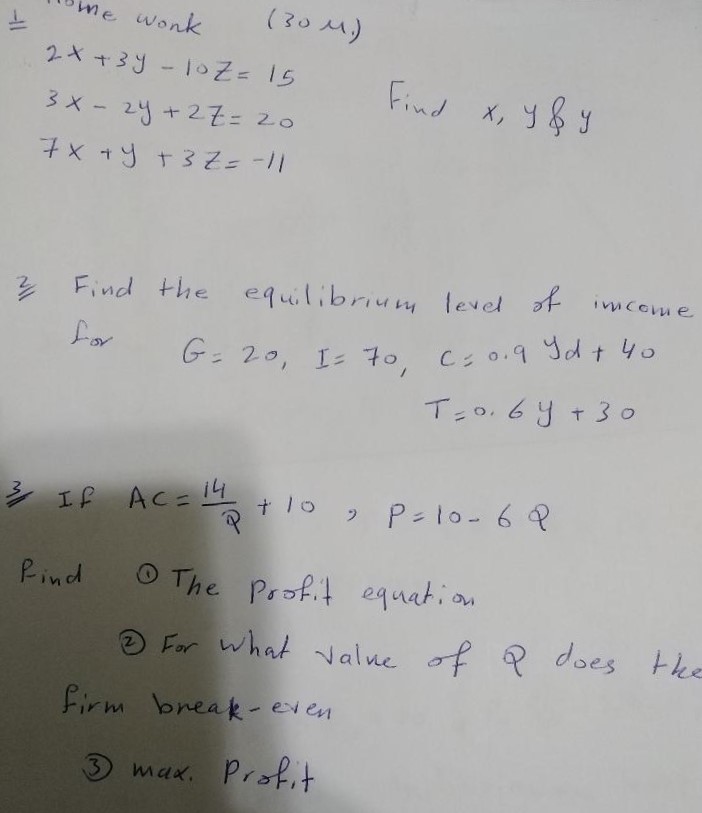 1 Home work (30 M.)
2x + 3y - 10Z = 15
3x - 2y + 2Z = 20
Find x, y & y
7x + y + 3Z = -11
2 Find the equilibrium level of imcome
for G = 20, I = 70, C = 0.9 Yd + 40
T = 0.6 y + 30
3 If AC = 14/Q + 10 , P = 10 - 6 Q
Find ① The Profit equation
② For what value of Q does the
firm break-even
③ max. Profit